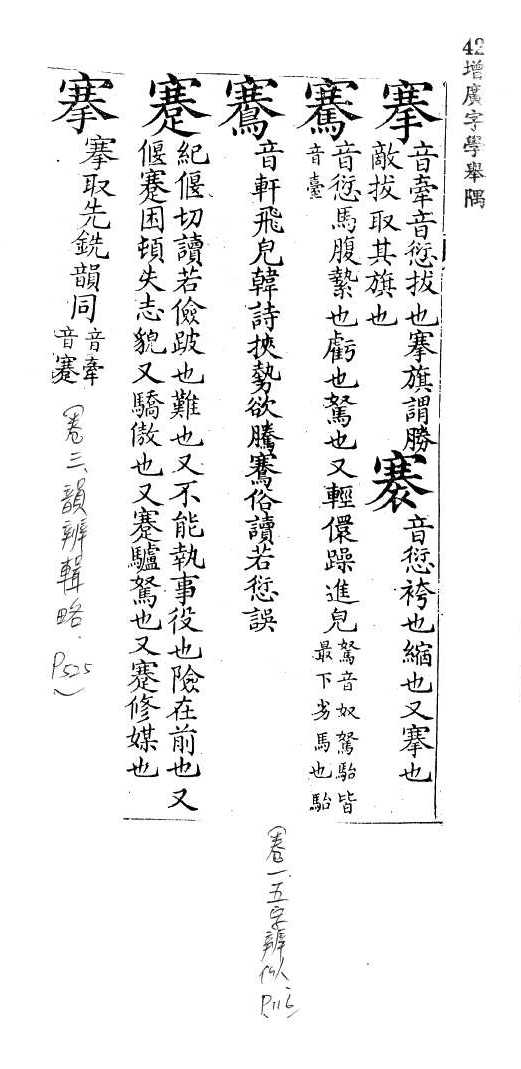 42
增廣字學舉隅
搴 音牽音愆拔也搴旗謂勝
敵拔取其旗也
褰 音愆袴也縮也又搴也
騫 音愆馬腹縶也虧也駑也又輕儇躁進皃 駑音奴駑駘皆
最下劣馬也駘
音臺
鶱 音軒飛皃韓詩挾勢欲騰鶱俗讀若愆誤
蹇 紀偃切讀若儉跛也難也又不能執事役也險在前也又
偃蹇困頓失志貌又驕傲也又蹇驢駑也又蹇修媒也
搴 搴取先銑韻同 音牽
音蹇
(卷三、韻辨輯略.P525)
(卷一.五字辨似P116)